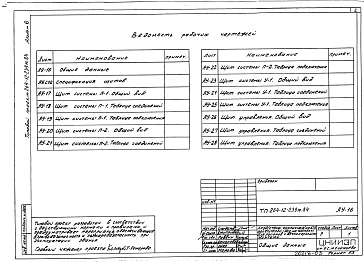 Ведомость рабочих чертежей
Лист Наименование примеч.
АУ-16 Общие данные
Спецификация щитов
АУ-17 Щит системы П-1. Общий вид
АУ-18 Щит системы П-1. Таблица соединений
АУ-19 Щит системы П-1. Таблица подключения
АУ-20 Щит системы П-2. Общий вид
АУ-21 Щит системы П-2. Таблица соединений
Лист Наименование примеч.
АУ-22 Щит системы П-2. Таблица подключения
АУ-23 Щит системы У-1. Общий вид
АУ-24 Щит системы У-1. Таблица соединений
АУ-25 Щит системы У-1. Таблица подключения
АУ-26 Щит управления. Общий вид
АУ-27 Щит управления. Таблица соединений
АУ-28 Щит управления. Таблица подключения
Типовой проект разработан в соответствии
с действующими нормами и правилами и
предусматривает мероприятия, обеспечивающие
эксплуатации здания
Главный инженер проекта
Привязан
ТП 264-12-233м.84 АУ-16
Общие данные
ЦНИИЭП